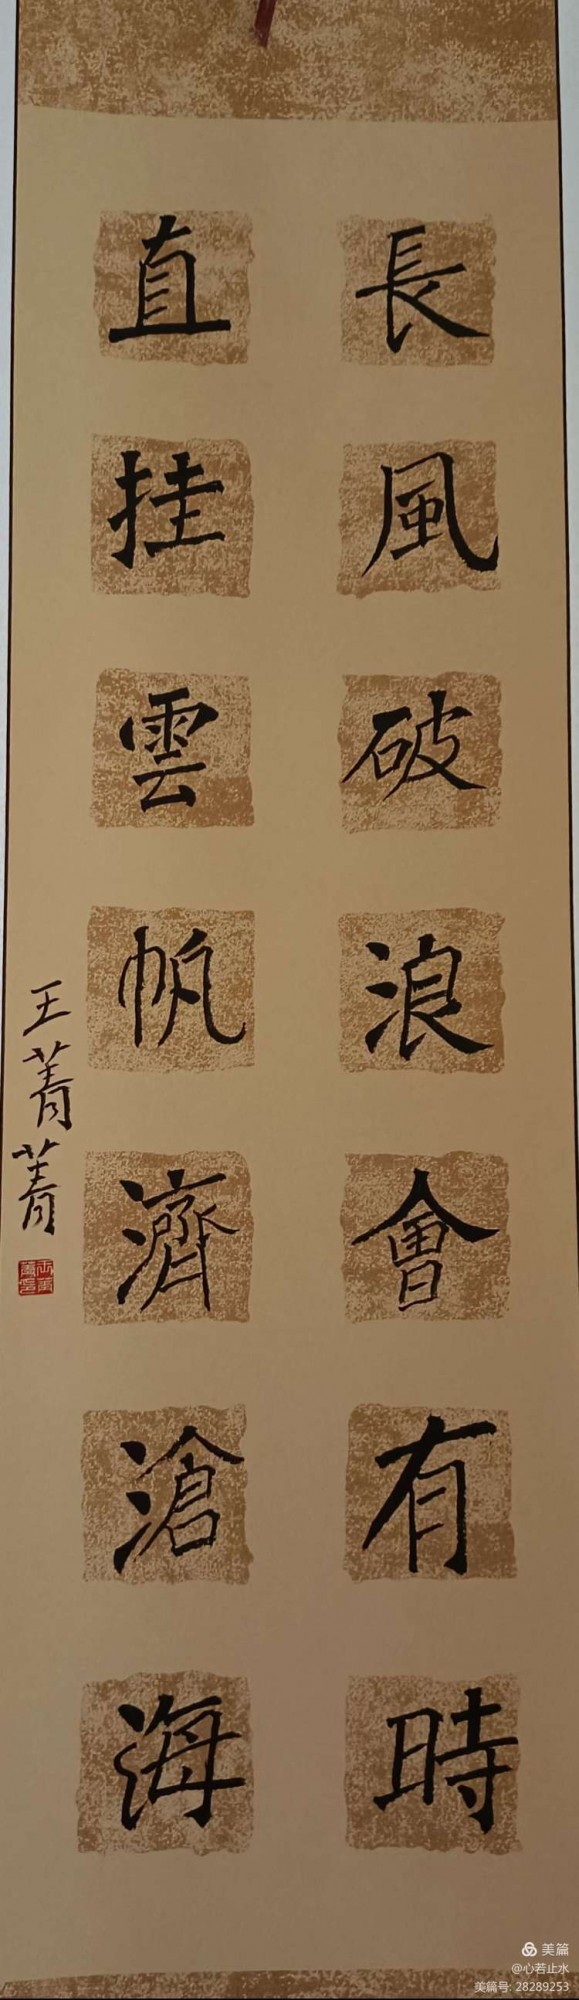 長風破浪會有時
直挂雲帆濟滄海
王菁菁
美篇
@心若止水
美篇号: 28289253